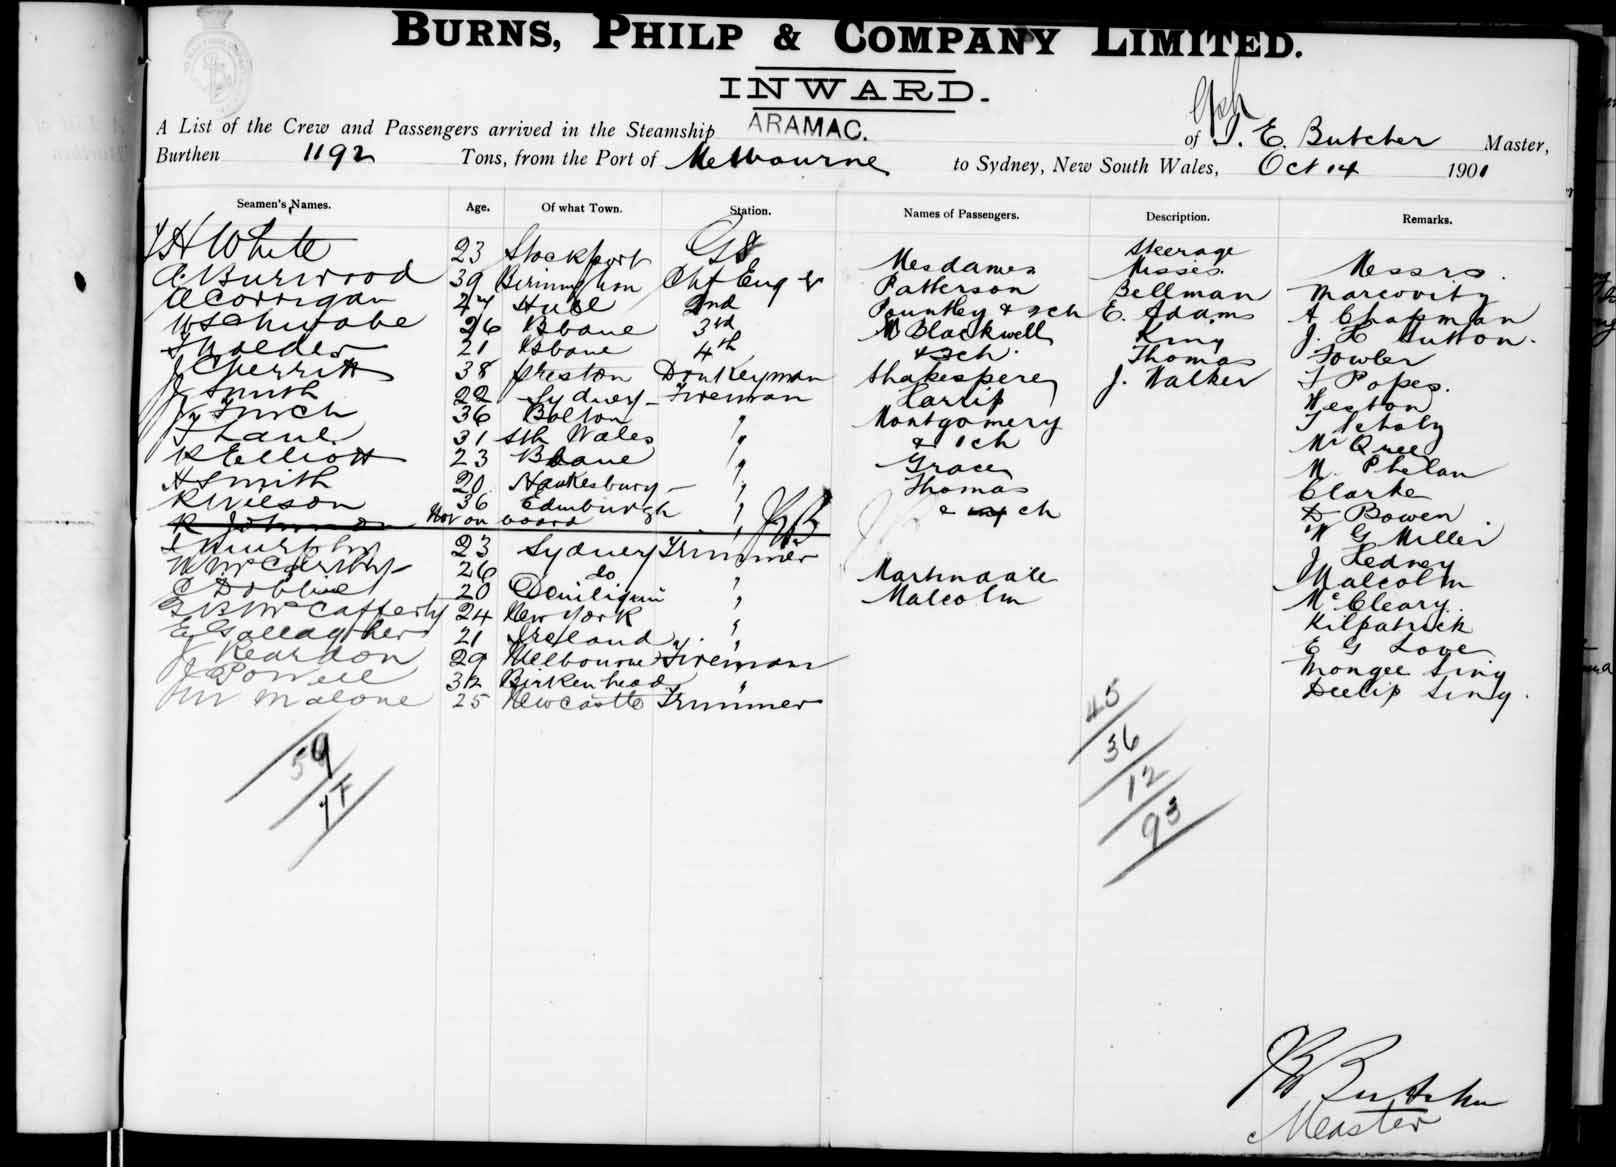 BURNS, PHILP & COMPANY LIMITED.
INWARD.
A List of the Crew and Passengers arrived in the Steamship ARAMAC. of T. E. Butcher Master,
Burthen 1192 Tons, from the Port of Melbourne to Sydney, New South Wales, Oct 14 1901
Seamen's Names. Age. Of what Town. Station. Names of Passengers. Description. Remarks.
H White 23 Stockport GS
A. Burwood 39 Birmingham Chf Engr
A Corrigan 24 Hull 2nd
W Schwabe 26 Bbane 3rd
21 Bbane 4th
J Cherritt 38 Preston Donkeyman
J Smith 22 Sydney Fireman
36 Bolton "
T Lane 31 Sth Wales "
R Elliott 23 Bbane "
H Smith 20 Hawkesbury "
R Wilson 36 Edinburgh "
R Johnson Not on board "
T Murphy 23 Sydney Trimmer
W McCarthy 26 do
C Dobbie 20 Deniliquin "
McCafferty 24 New York "
E Gallagher 21 Ireland "
J Reardon 29 Melbourne Fireman
J Powell 32 Birkenhead "
Wm Malone 25 Newcastle Trimmer
59
Mesdames
Patterson
Pountley & 2ch
Blackwell
& 2ch.
Shakespere
Harlip
Montgomery
& 1ch
Grace
Thomas
& ch
Martindale
Malcolm
Steerage
Misses
Bellman
E. Adams
King
Thomas
J. Walker
Messrs.
Marcovitz
A Chapman
J. H Sutton.
Fowler
T Popes.
Weston
T Scholy
McQueen
M. Phelan
Clarke
D Bowen
W G Miller
J Ledney
Malcolm
McCleary.
Kilpatrick
E G Love
Mongee Sing
Deelip Sing.
45
36
12
93
Butcher
Master